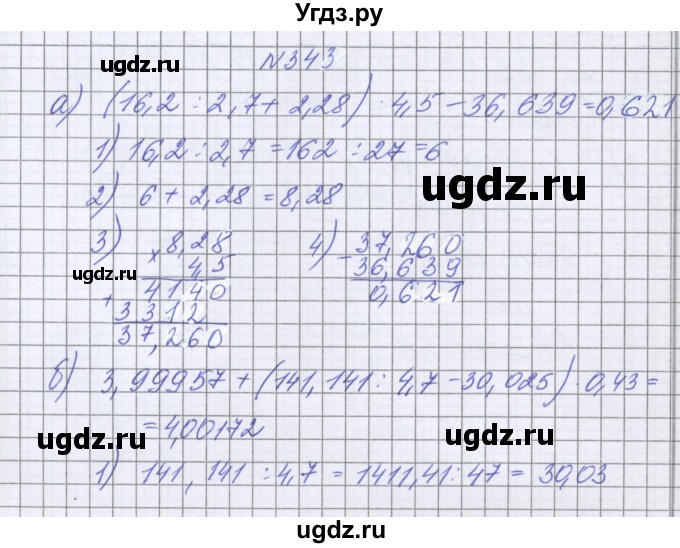 Угдз.ру
ugdz.ru
N343
а) (16,2 : 2,7 + 2,28) · 4,5 - 36,639 = 0,621
1) 16,2 : 2,7 = 162 : 27 = 6
ugdz.ru
2) 6 + 2,28 = 8,28
3) × 8,28 4) - 37,260
4,5 36,639
ugdz.ru
+ 4140 0,621
3312
37,260
ugdz.ru
б) 3,99957 + (141,141 : 4,7 - 30,025) · 0,43 =
= 4,00172
ugdz.ru
ugdz.ru
1) 141,141 : 4,7 = 1411,41 : 47 = 30,03
ugdz.ru